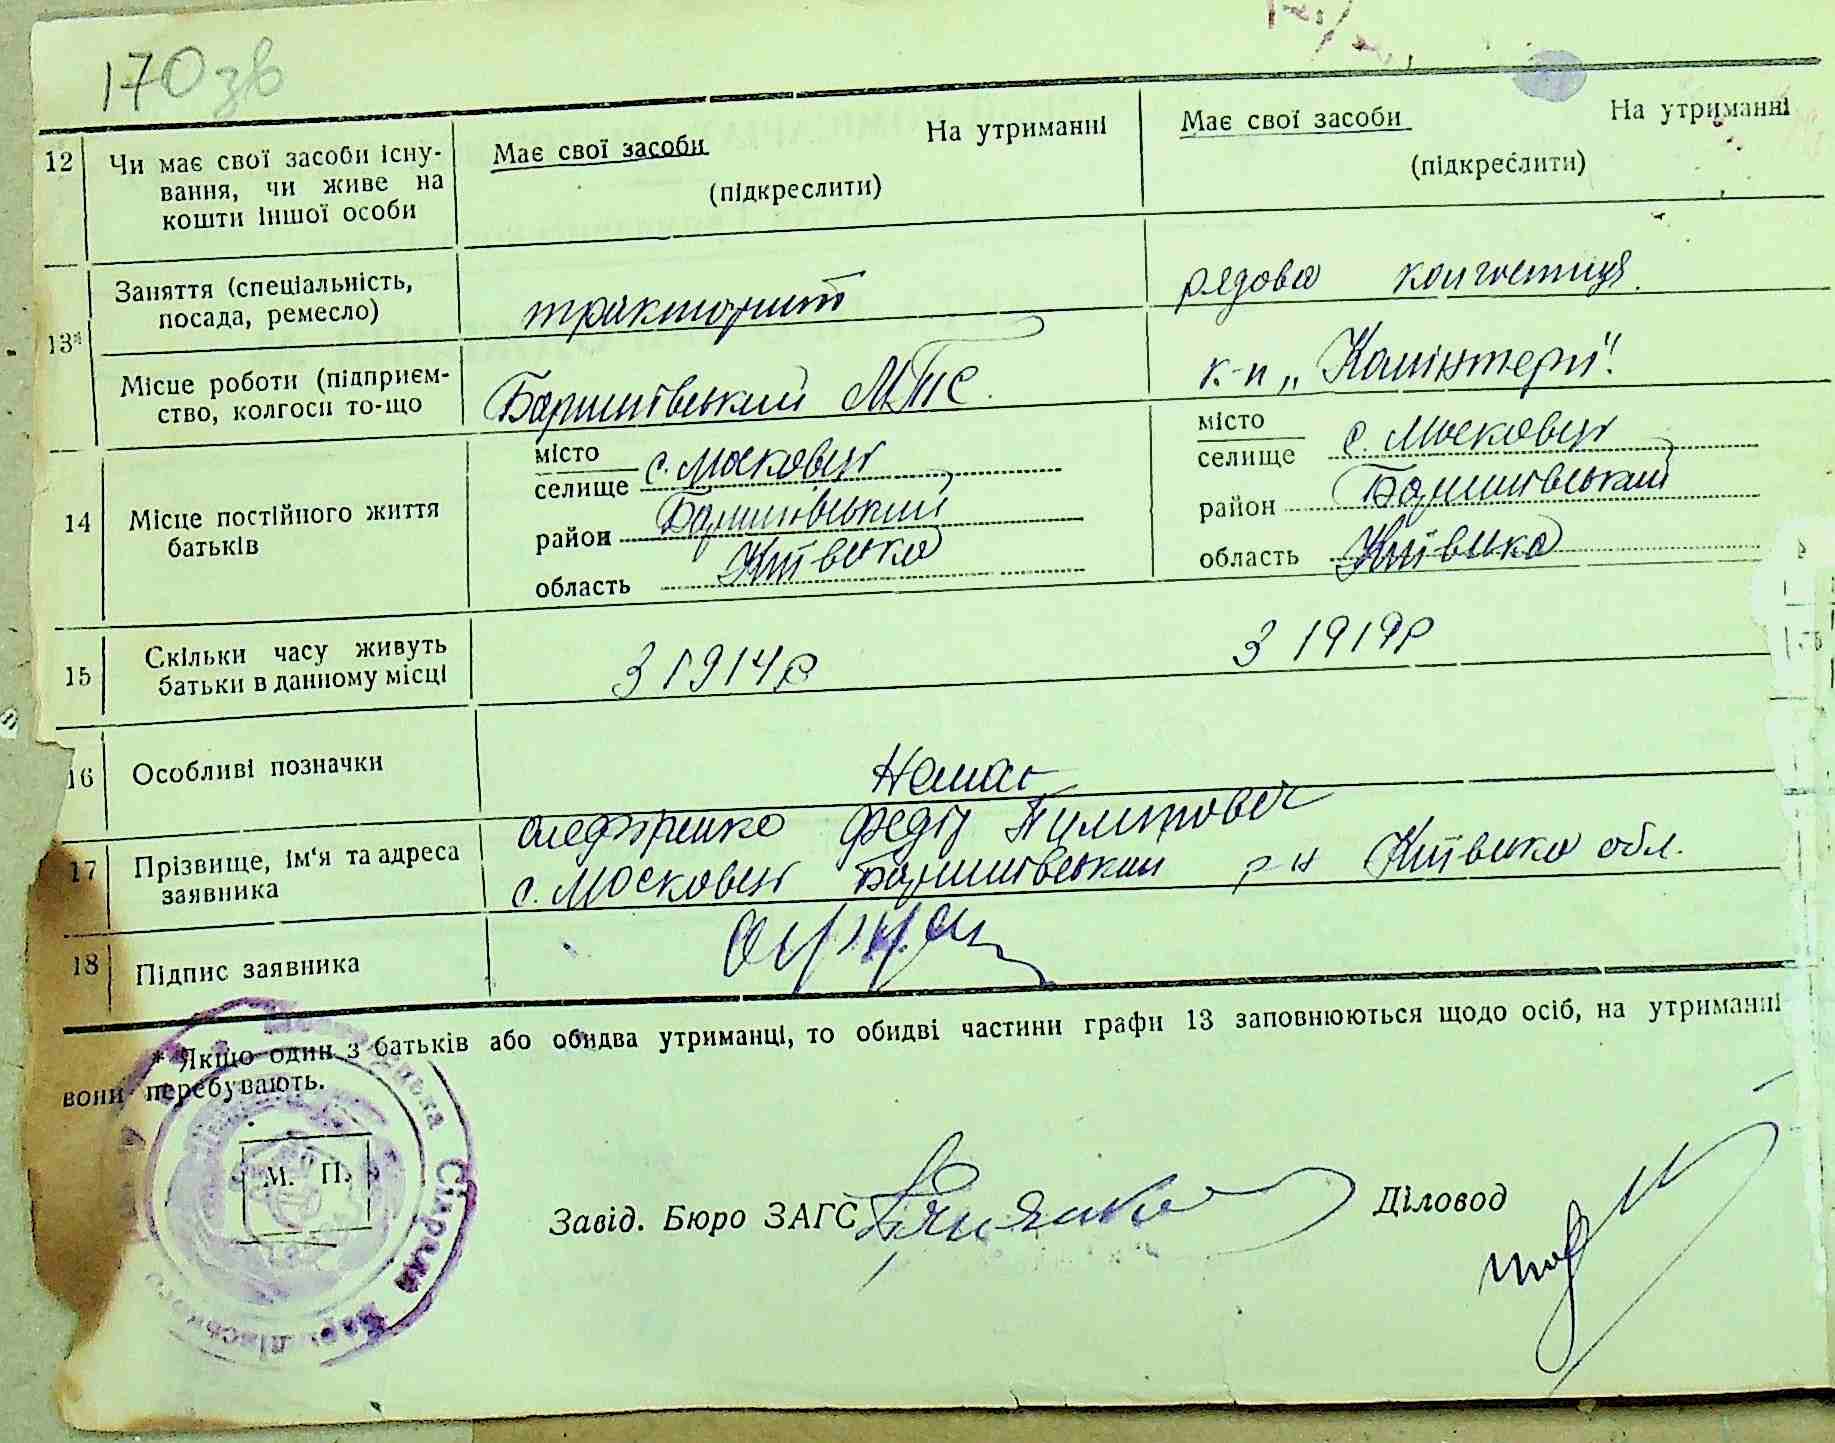 170 зв
12 Чи має свої засоби існу- Має свої засоби На утриманні Має свої засоби На утриманні
вання, чи живе на (підкреслити) (підкреслити)
кошти іншої особи
Заняття (спеціальність, тракторист рядова колгоспниця
посада, ремесло)
13*
Місце роботи (підприєм- МТС к-п „Комінтерн".
ство, колгосп то-що
місто місто
селище с. Московці селище с. Московці
14 Місце постійного життя район Баришівський район Баришівський
батьків область Київська область Київська
15 Скільки часу живуть З 1914 р З 1919 р
батьки в данному місці
16 Особливі позначки Немає
17 Прізвище, ім'я та адреса Федір
заявника с. Московці Баришівський р н Київська обл.
18 Підпис заявника
* Якщо один з батьків або обидва утриманці, то обидві частини графи 13 заповнюються щодо осіб, на утриманні
вони перебувають.
М. П.
Завід. Бюро ЗАГС Діловод